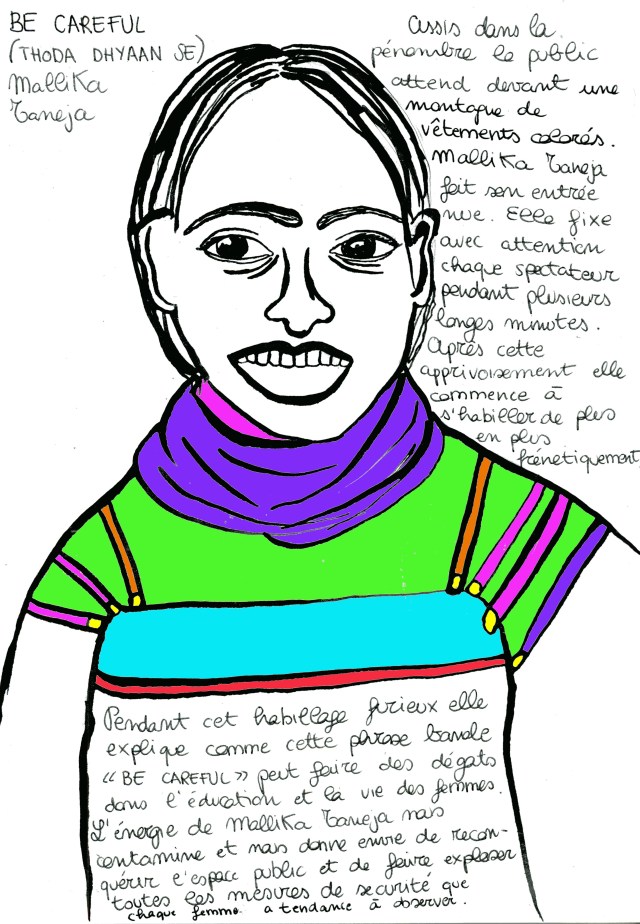 BE CAREFUL
(THODA DHYAAN SE)
Mallika
Taneja
Assis dans la
pénombre le public
attend devant une
montagne de
vêtements colorés.
Mallika Taneja
fait son entrée
nue. Elle fixe
avec attention
chaque spectateur
pendant plusieurs
longes minutes.
Après cette
apprivoisement elle
commence à
s'habiller de plus
en plus
frénetiquement
Pendant cet habillage furieux elle
explique comme cette phrase banale
"BE CAREFUL" peut faire des dégats
dans l'éducation et la vie des femmes.
L'énergie de Mallika Taneja nous
contamine et nous donne envie de recon-
quérir l'espace public et de faire exploser
toutes les mesures de securité que
chaque femme a tendance à observer.